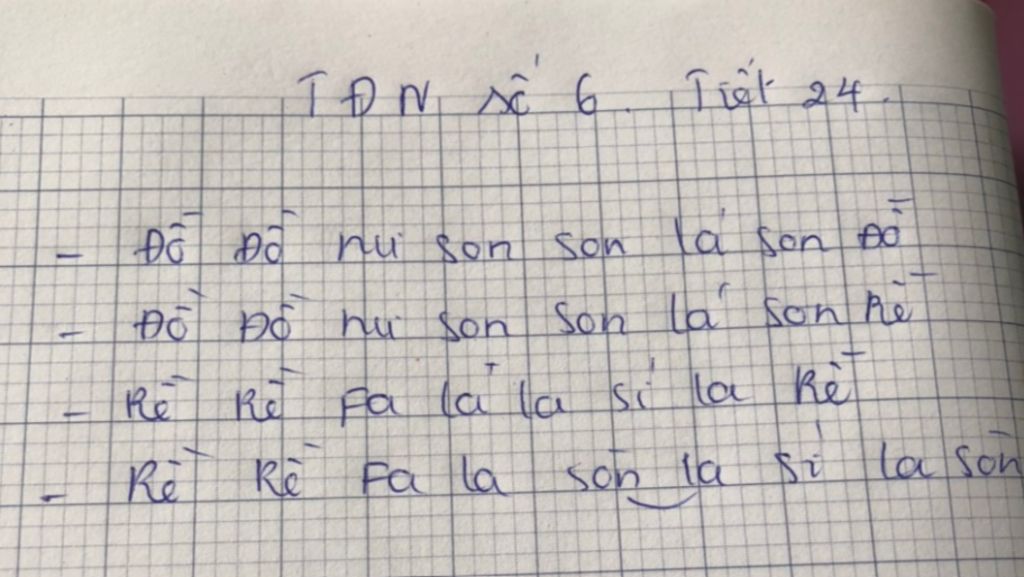 TĐN số 6. Tiết 24.
- Đồ Đồ mi son son lá son Đồ
- Đồ Đồ mi son son lá son Rề
- Rề Rề Fa la la sí la Rề
- Rề Rề Fa la son la sí la son